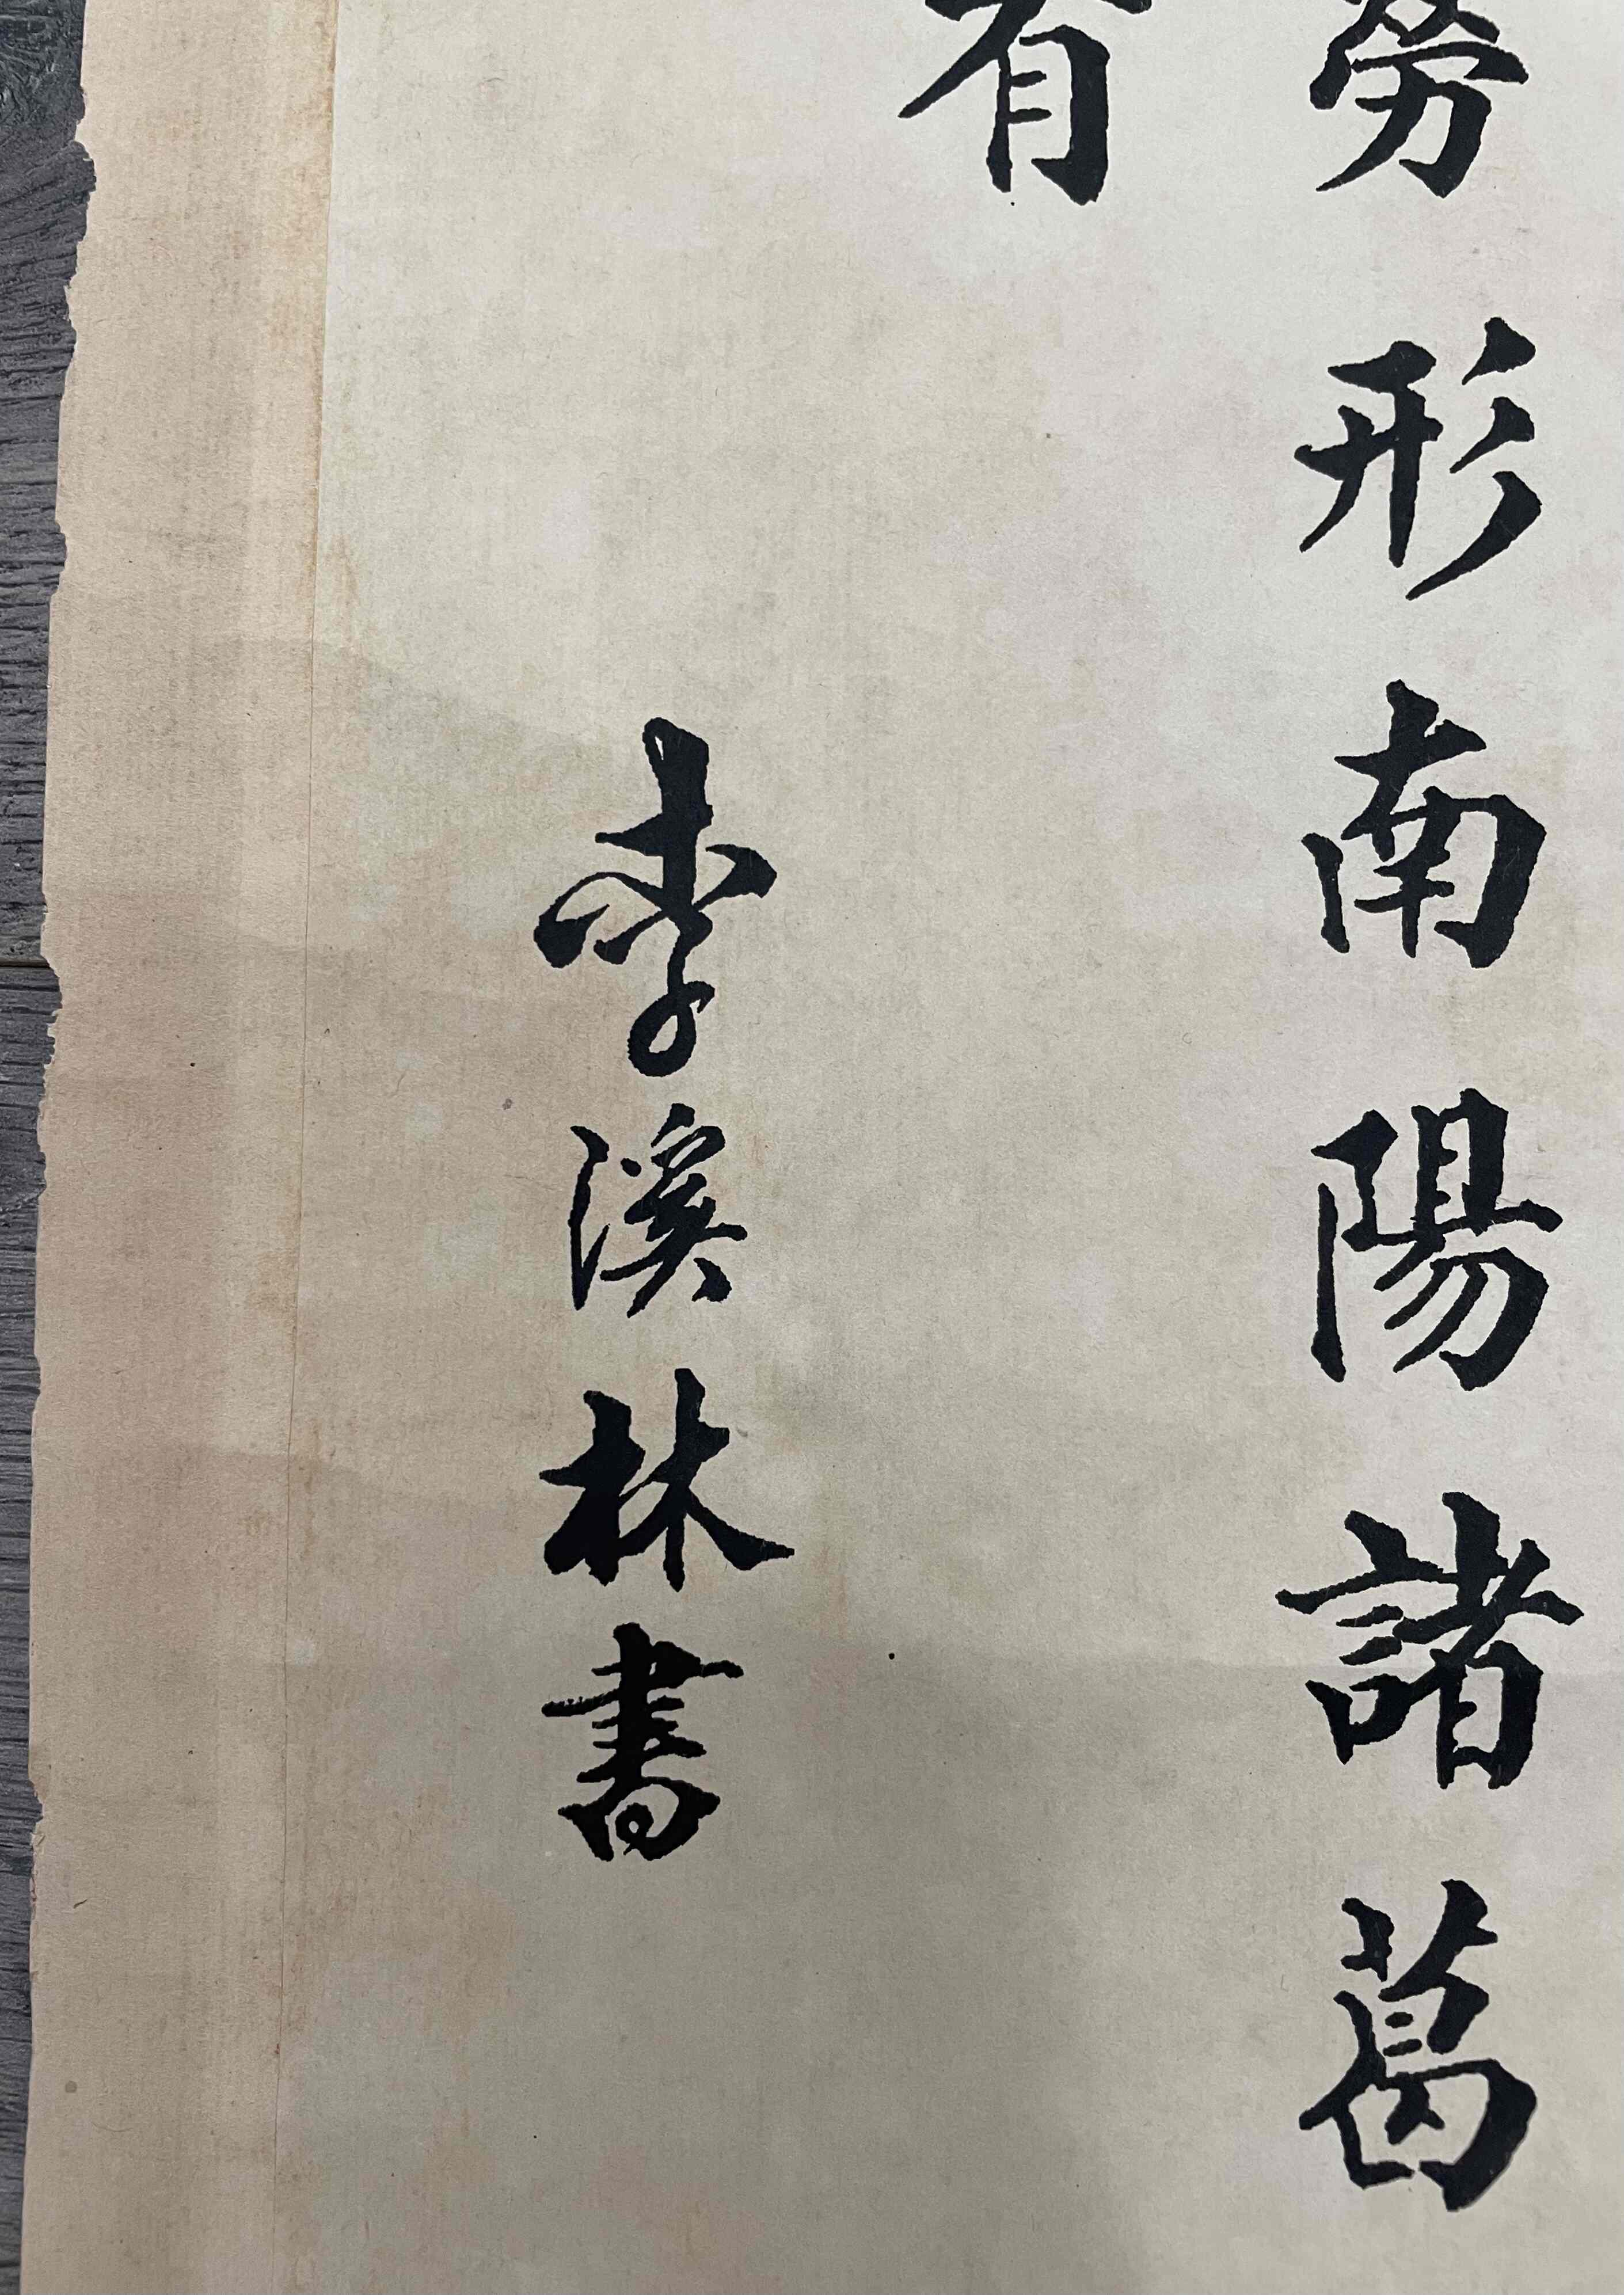 勞形南陽諸葛
有
李溪林書